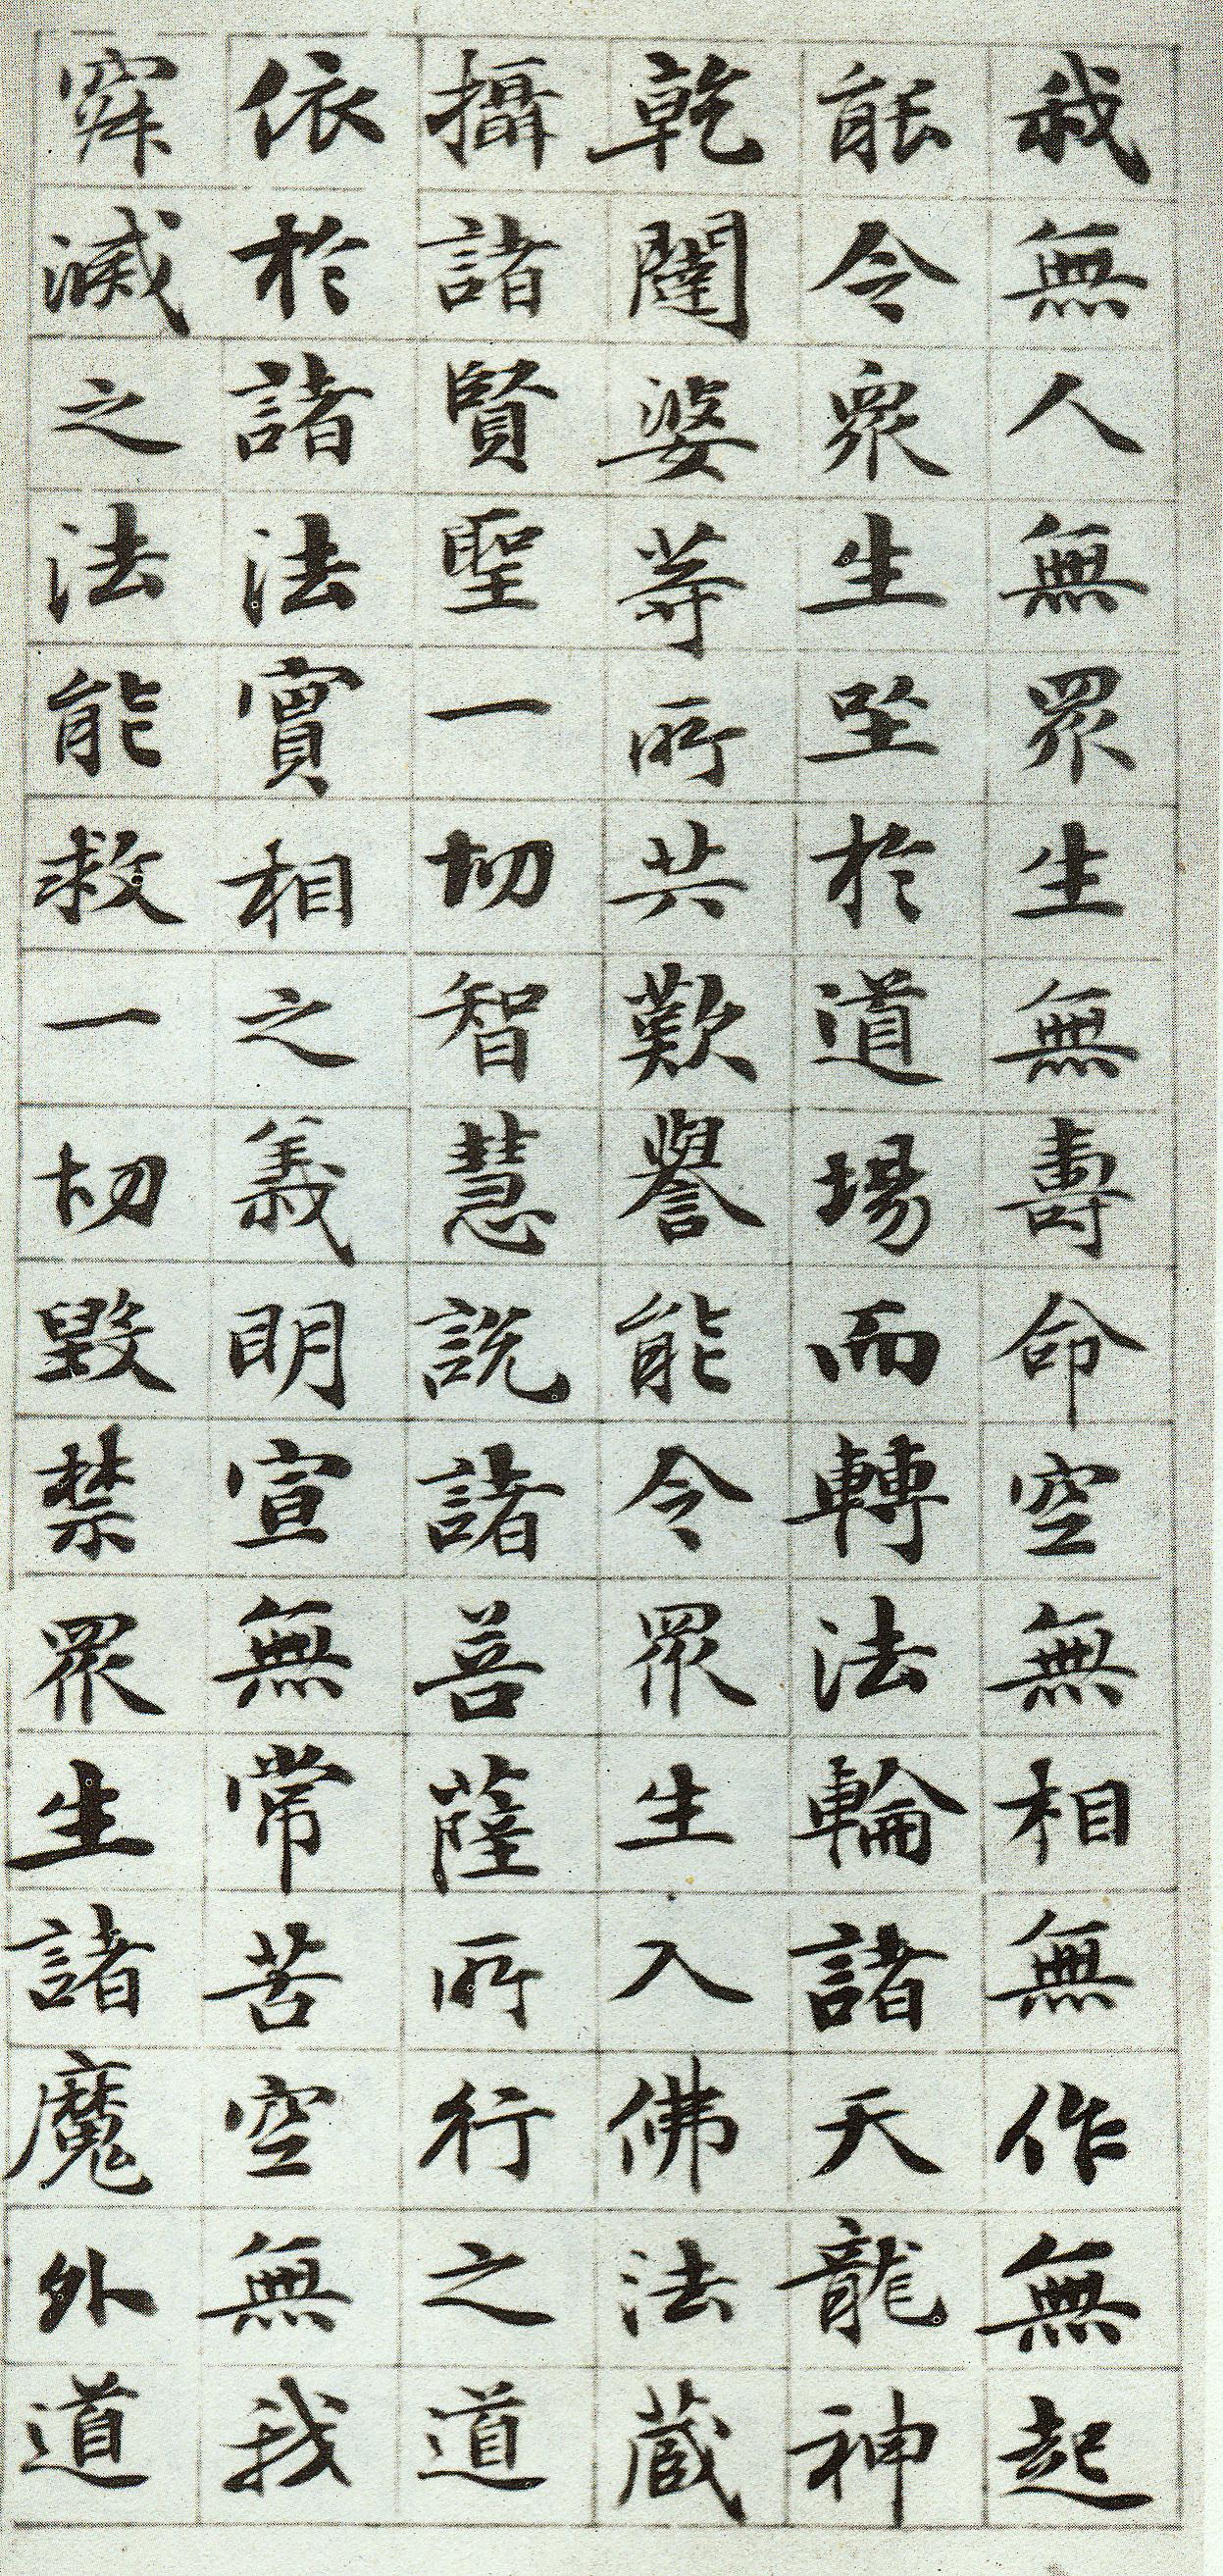 我無人無眾生無壽命空無相無作無起
能令衆生坐於道場而轉法輪諸天龍神
乾闥婆等所共歎譽能令眾生入佛法藏
攝諸賢聖一切智慧說諸菩薩所行之道
依於諸法實相之義明宣無常苦空無我
寂滅之法能救一切毀禁眾生諸魔外道